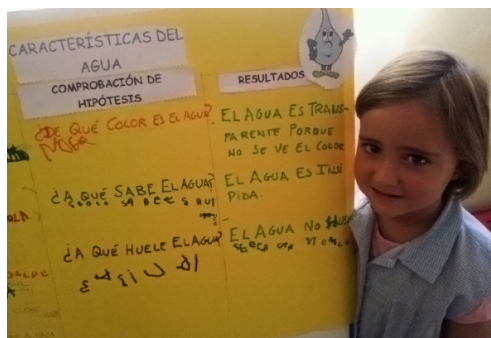 CARACTERÍSTICAS DEL
AGUA
COMPROBACIÓN DE
HIPÓTESIS
RESULTADOS
¿DE QUÉ COLOR ES EL AGUA?
EL AGUA ES TRANS-
PARENTE PORQUE
NO SE VE EL COLOR
¿A QUÉ SABE EL AGUA?
EL AGUA ES INSÍ
PIDA.
¿A QUÉ HUELE EL AGUA?
EL AGUA NO HUELE